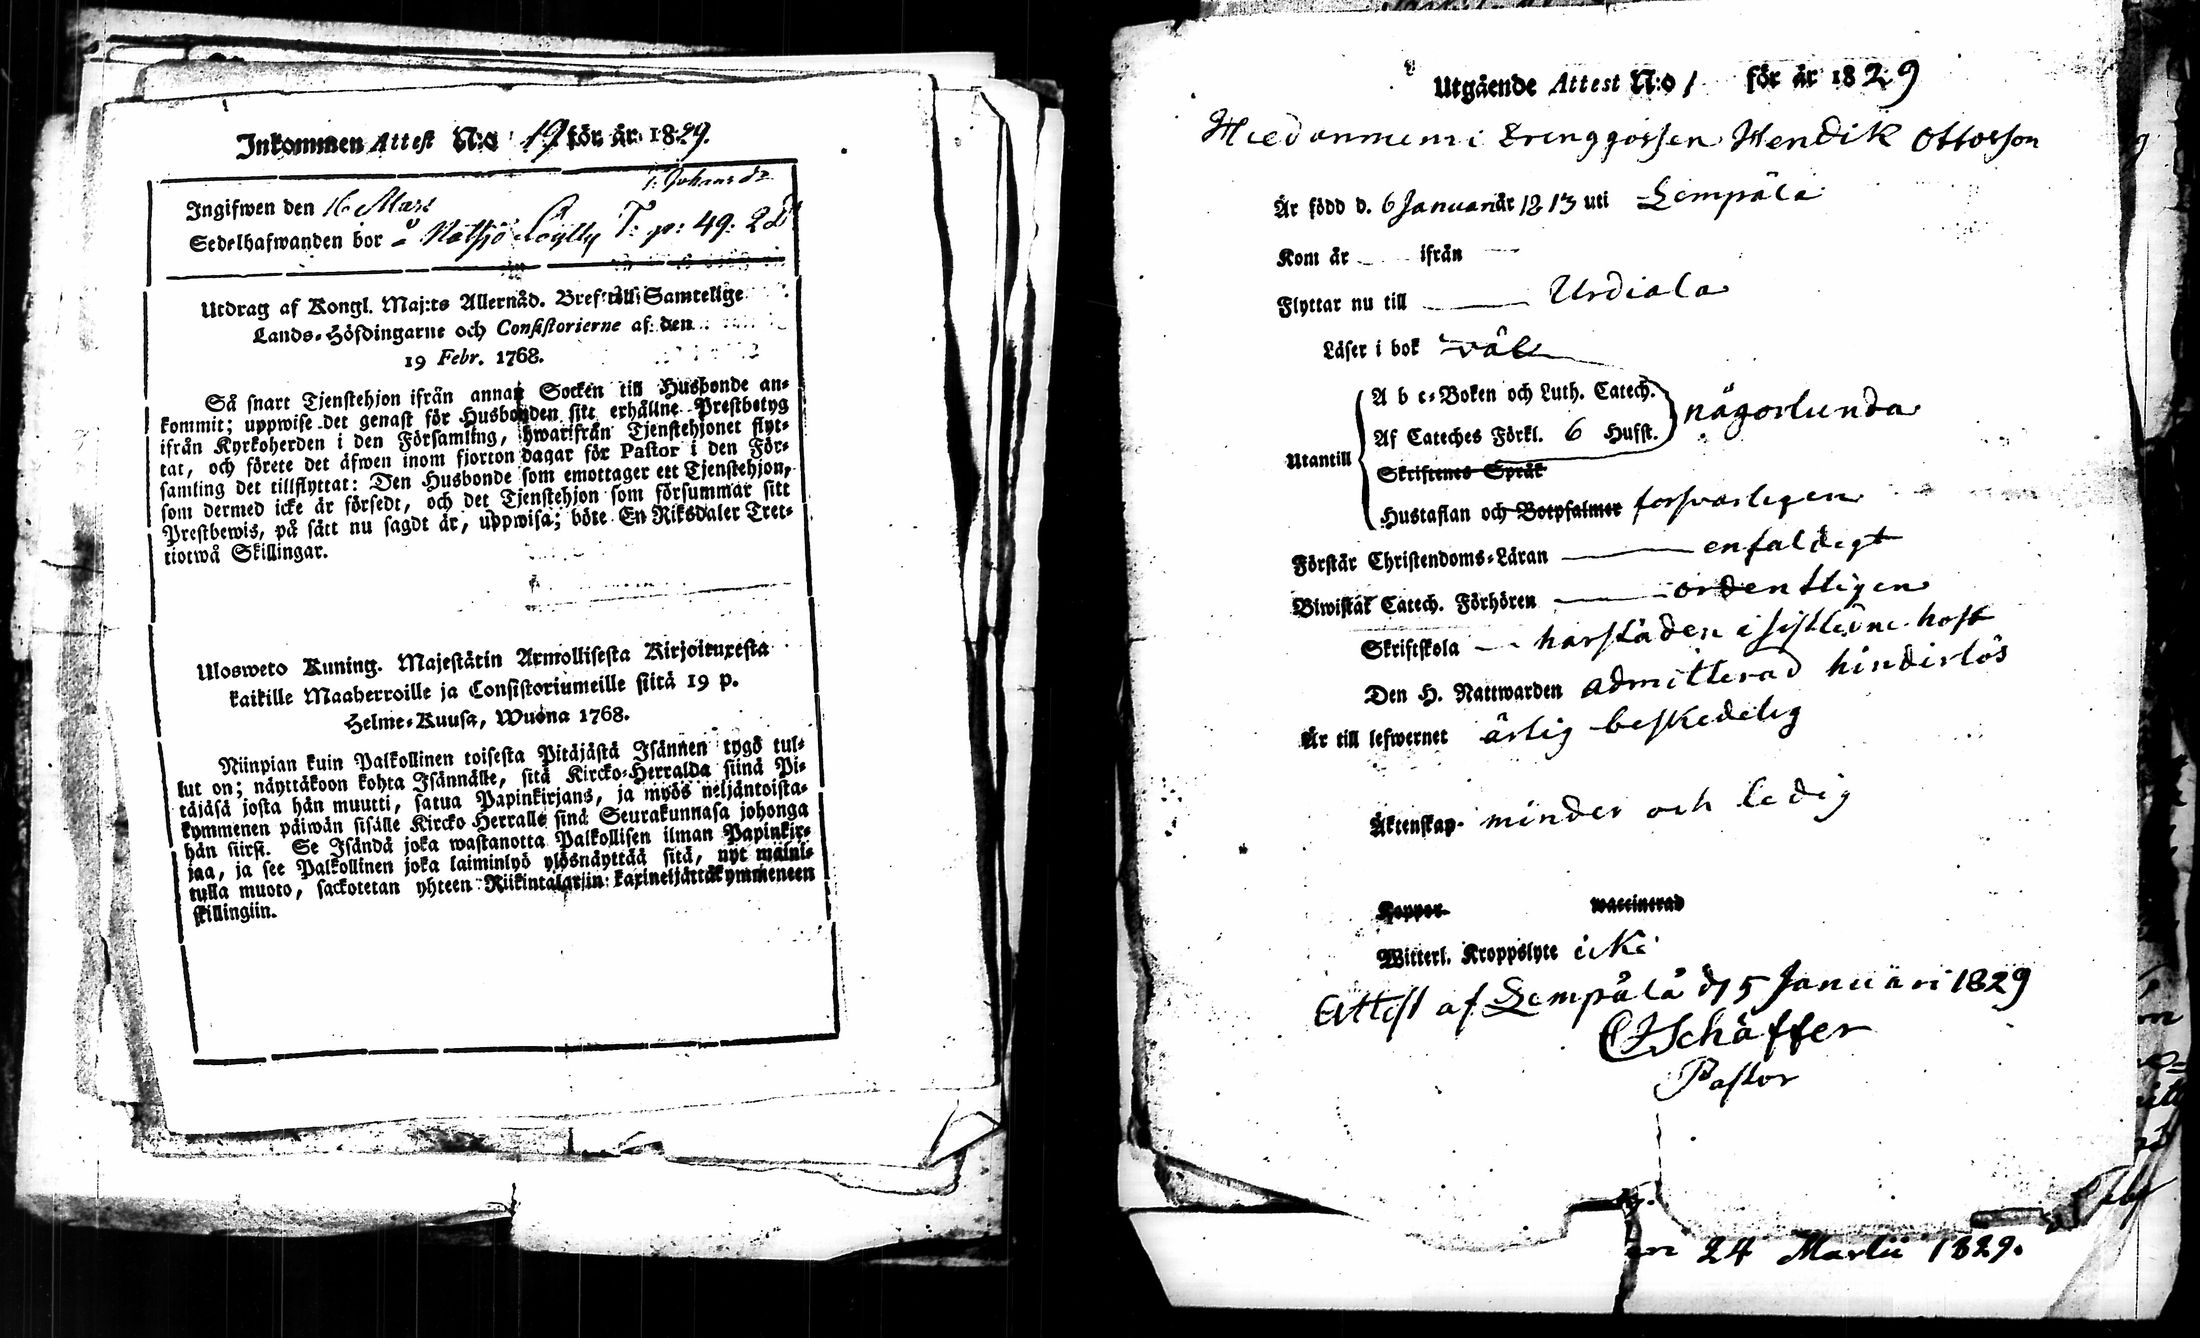 Inkommen Attest N:o 19 för år 1829.
Ingifwen den 16 Mars
Sedelhafwanden bor å T. p: 49.
Utdrag af Kongl. Maj:ts Allernåd. Bref till Samtelige
Lands-Höfdingarne och Consistorierne af den
19 Febr. 1768.
Så snart Tjenstehjon ifrån annan Socken till Husbonde an-
kommit; uppwise det genast för Husbonden sitt erhållne Prestbetyg
ifrån Kyrkoherden i den Församling, hwarifrån Tjenstehjonet flyt-
tat, och förete det äfwen inom fjorton dagar för Pastor i den För-
samling det tillflyttat: Den Husbonde som emottager ett Tjenstehjon,
som dermed icke är försedt, och det Tjenstehjon som försummar sitt
Prestbewis, på sätt nu sagdt är, uppwisa; böte En Riksdaler Tret-
tiotwå Skillingar.
Ulosweto Kuning. Majestätin Armollisesta Kirjoituxesta
kaikille Maaherroille ja Consistoriumeille siitä 19 p.
Helme-Kuusa, Wuona 1768.
Niinpian kuin Palkollinen toisesta Pitäjästä Isännen tygö tul-
lut on; näyttäkoon kohta Isännälle, sitä Kircko-Herralda siinä Pi-
täjäsä josta hän muutti, satua Papinkirjans, ja myös neljäntoista-
kymmenen päiwän sisälle Kircko Herralle sinä Seurakunnasa johonga
hän siirsi. Se Isändä joka wastanotta Palkollisen ilman Papinkir-
jaa, ja see Palkollinen joka laiminlyö ylösnäyttää sitä, nyt mainí-
tulla muoto, sackotetan yhteen Riikintalariin kaxineljättäkymmeneen
skillingiin.
Utgående Attest N:o 1 för år 1829
Drenggossen Hendik Ottosson
Är född d. 6 Januari år 1813 uti Lempälä
Kom år ifrån
Flyttar nu till Urdiala
Läser i bok väl
A b c-Boken och Luth. Catech.
Af Cateches Förkl. 6 Hufst. någorlunda
Utantill
Skriftenes Språk
Hustaflan och Botpsalmer forsvarligen
Förstår Christendoms-Läran enfaldigt
Biwistat Catech. Förhören ordentligen
Skriftskola höst
Den H. Nattwarden admitterad hinderlös
Är till lefwernet ärlig beskedelig
Äktenskap minder och ledig
Koppor waccinerad
Witterl. Kroppslyte icke
Attest af Lempälä d 15 Januari 1829
Schäffer
Pastor
24 Martii 1829.